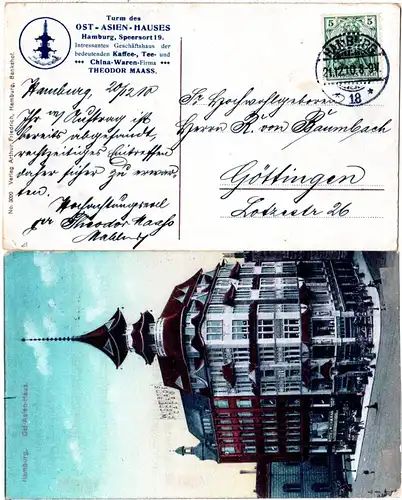 Turm des
OST-ASIEN-HAUSES
Hamburg, Speersort 19.
Intressantes Geschäftshaus der
bedeutenden Kaffee-, Tee- und
*** China-Waren-Firma ***
THEODOR MAASS.
Hamburg, 20/12 10
Ihr w/ Auftrag ist
bereits abgesandt,
rechtzeitiges Eintreffen
daher sicher zu erwar-
ten.
Hochachtungsvoll
ppr Theodor Maass
5 5
HAMBURG
21.12.10. 8-9 V
18 *
Sr Hochwohlgeboren
Herrn R. von Baumbach
Göttingen
Lotzestr 26
No. 205 Verlag Arthur Friedrich, Hamburg, Bankshof.
Hamburg. Ost Asien-Haus.